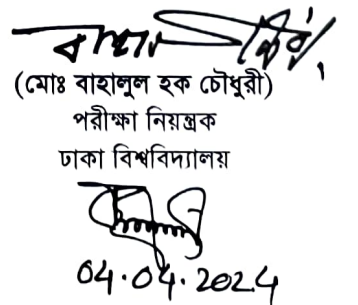 (মোঃ বাহালুল হক চৌধুরী)
পরীক্ষা নিয়ন্ত্রক
ঢাকা বিশ্ববিদ্যালয়
04.04.2024